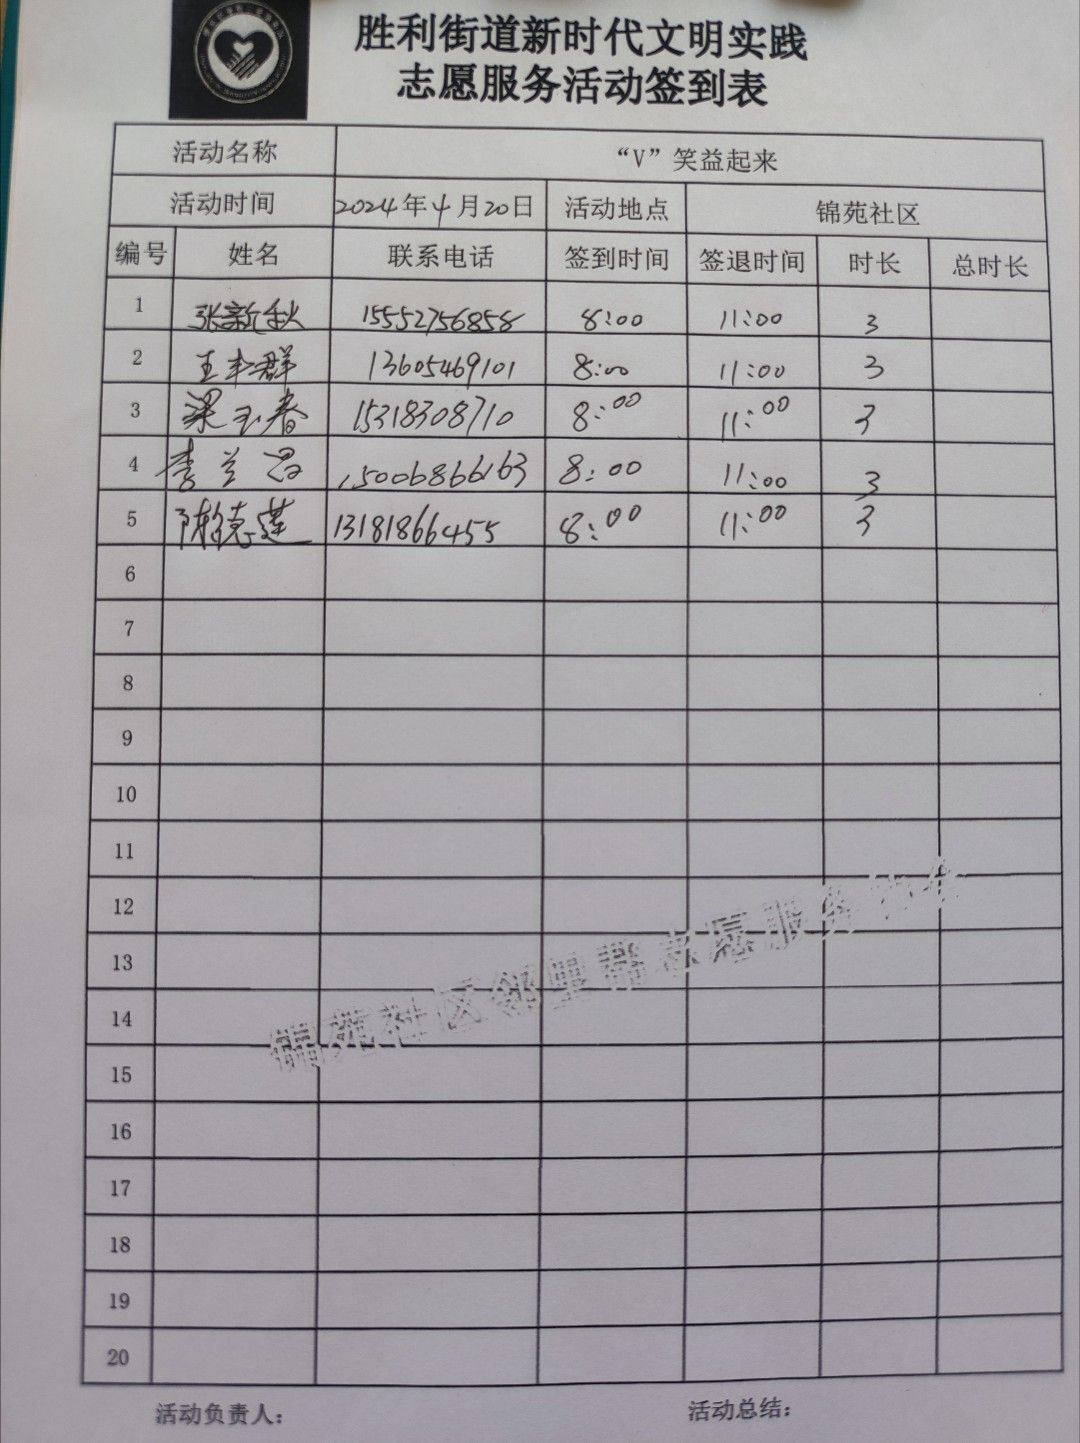 胜利街道新时代文明实践
志愿服务活动签到表
活动名称 “V”笑益起来
活动时间 2024年4月20日 活动地点 锦苑社区
编号 姓名 联系电话 签到时间 签退时间 时长 总时长
1 张新秋 15552756858 8:00 11:00 3
2 王丰群 13605469101 8:00 11:00 3
3 梁玉春 15318308710 8:00 11:00 3
4 李兰 15006866163 8:00 11:00 3
5 陈德莲 13181866455 8:00 11:00 3
6
7
8
9
10
11
12
13
14
15
16
17
18
19
20
锦苑社区邻里帮志愿服务
活动负责人： 活动总结：